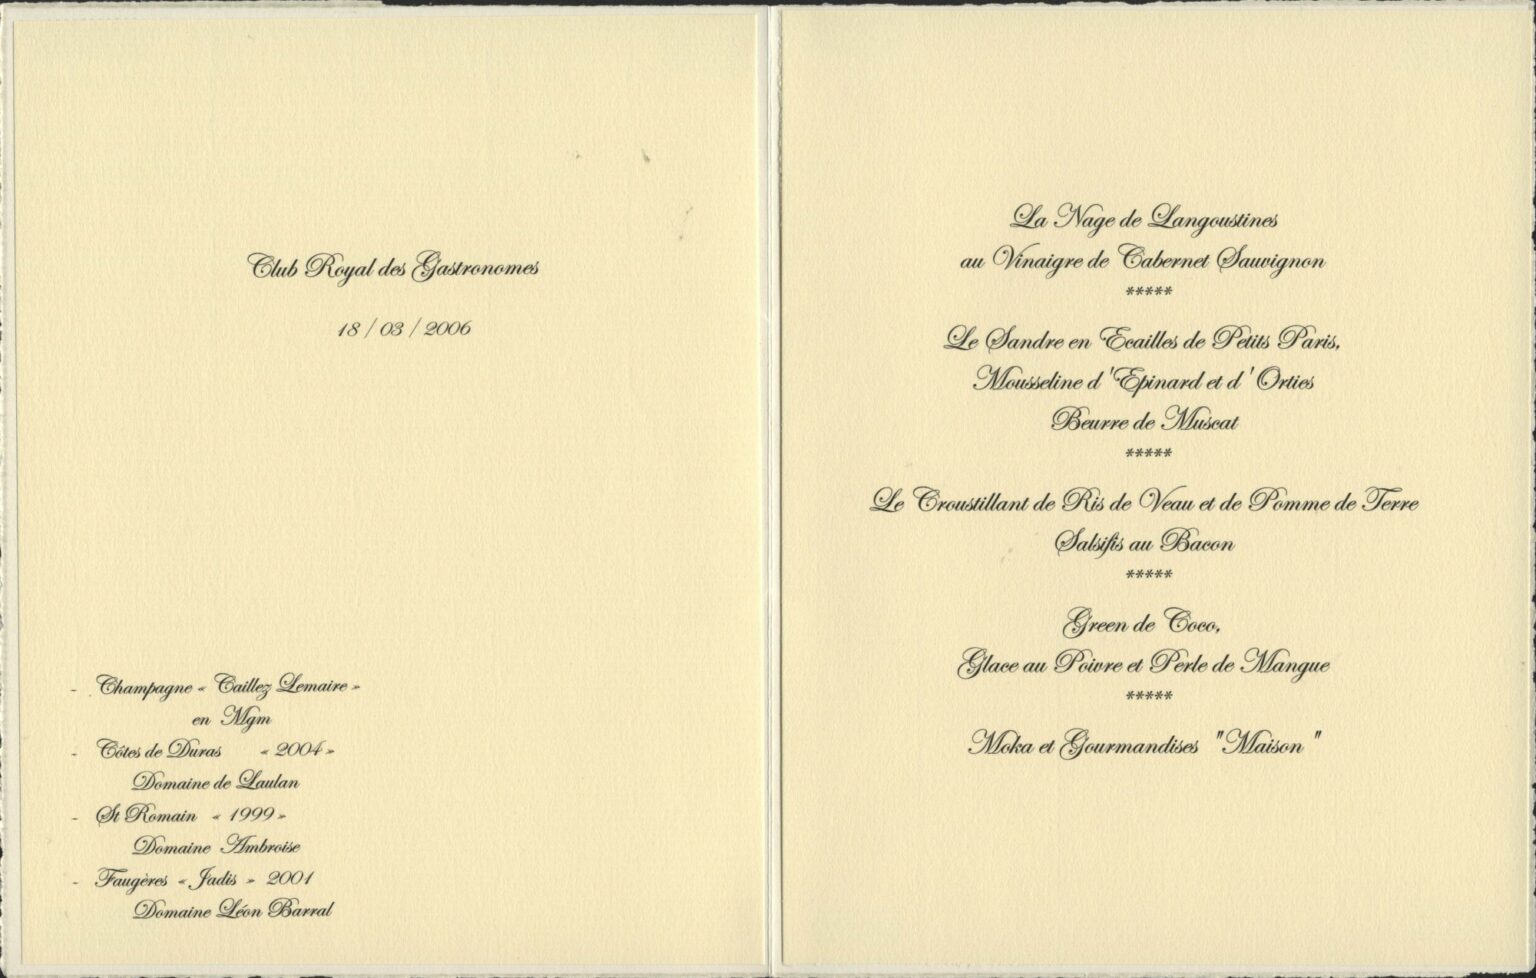 Club Royal des Gastronomes
18 / 03 / 2006
- Champagne « Caillez Lemaire »
en Mgm
- Côtes de Duras « 2004 »
Domaine de Laulan
- St Romain « 1999 »
Domaine Ambroise
- Faugères « Jadis » 2001
Domaine Léon Barral
La Nage de Langoustines
au Vinaigre de Cabernet Sauvignon
*****
Le Sandre en Ecailles de Petits Paris,
Mousseline d'Epinard et d' Orties
Beurre de Muscat
*****
Le Croustillant de Ris de Veau et de Pomme de Terre
Salsifis au Bacon
*****
Green de Coco,
Glace au Poivre et Perle de Mangue
*****
Moka et Gourmandises "Maison "